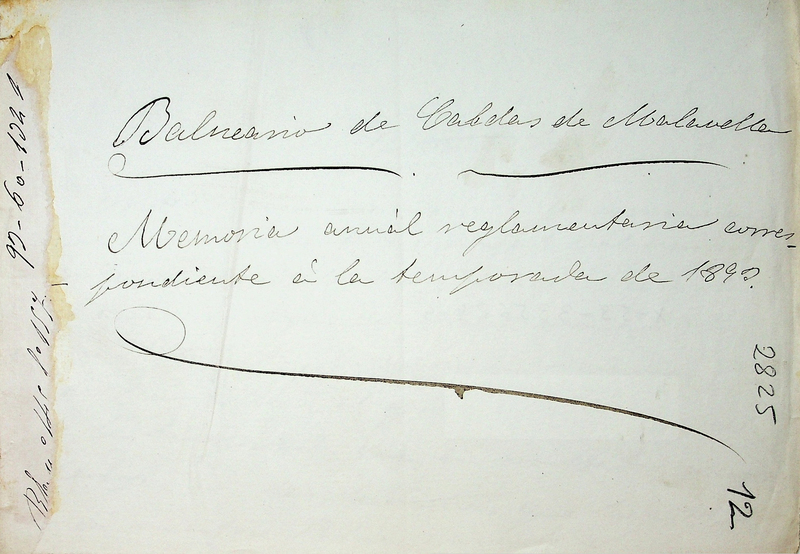 Balneario de Caldas de Malavella
Memoria anuál reglamentaria corres-
pondiente á la temporada de 1893.
2825
12
99-60-1321